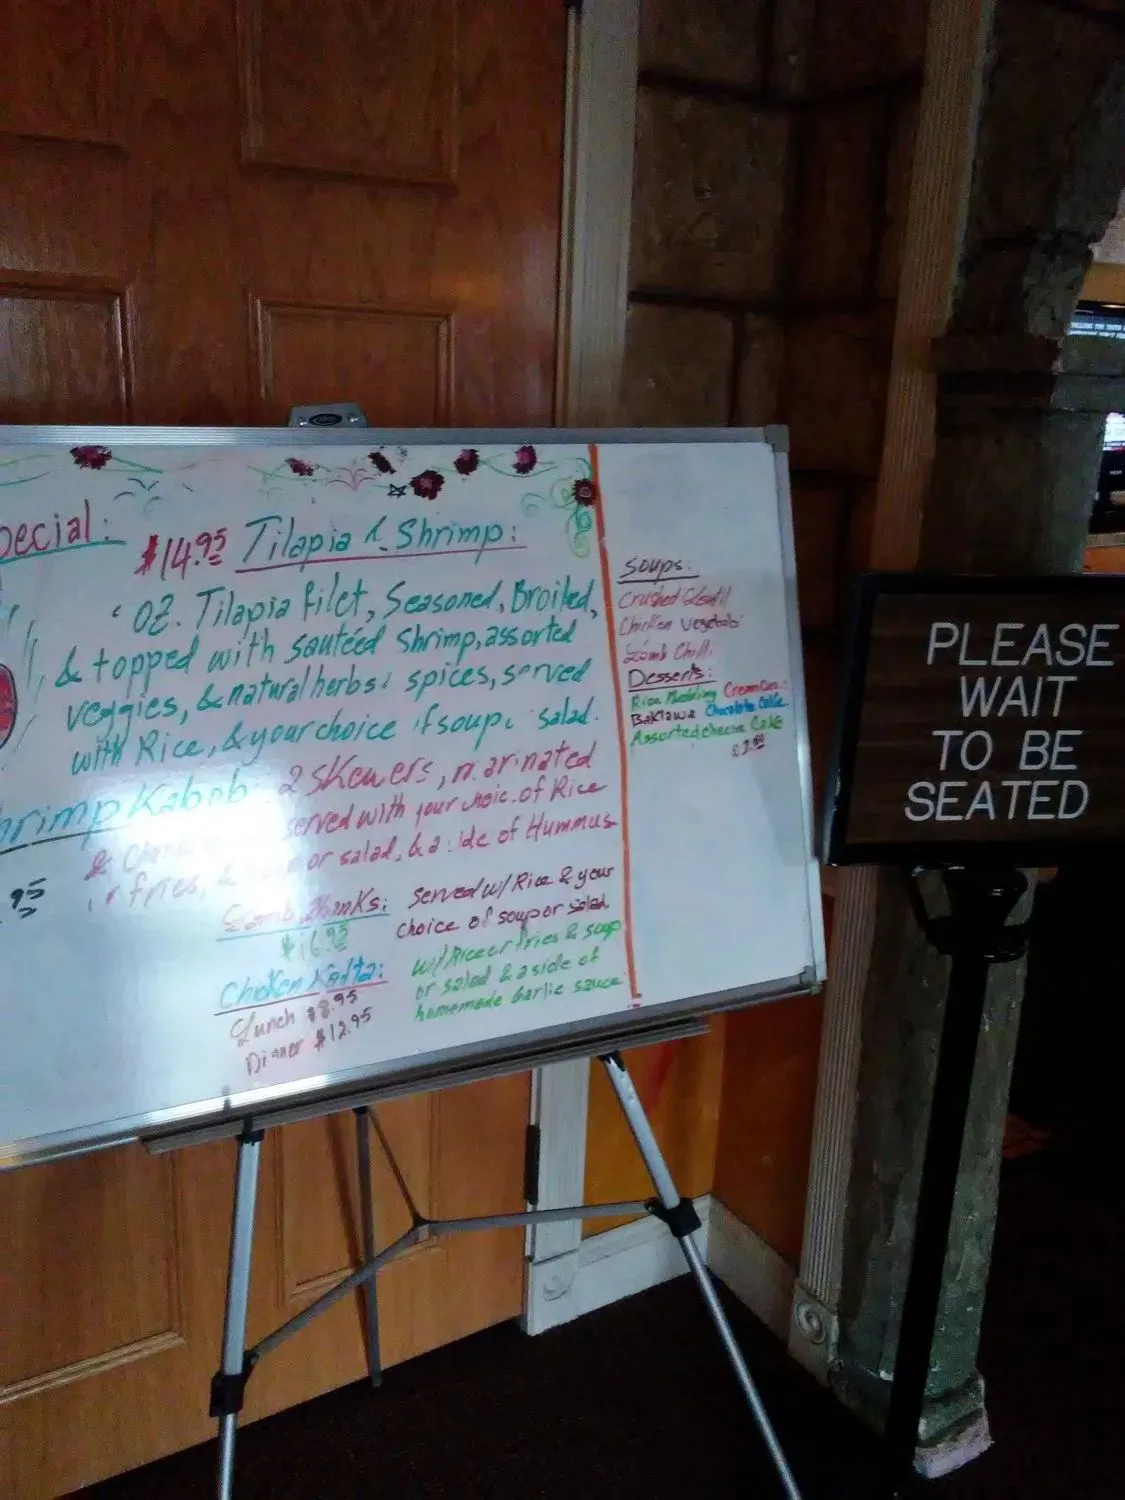 $14.95 Tilapia & Shrimp:
OZ. Tilapia filet, Seasoned, Broiled,
& topped with sautéed Shrimp, assorted
veggies, & natural herbs & spices, served
with Rice, & your choice of soup or salad.
Kabob: 2 Skewers, marinated
served with your choice of Rice
or fries, & soup or salad, & a side of Hummus
.95
Lamb Shanks: Served w/ Rice & your
$16.95 choice of soup or salad
Chicken Kafta: w/ Rice or fries & soup
Lunch $8.95 or salad & a side of
Dinner $12.95 homemade Garlic sauce
Soups:
Crushed
Chicken
Lamb Chili
Desserts:
Rice Pudding Cream
Baklawa Chocolate Cake
Assorted cheese Cake
PLEASE
WAIT
TO BE
SEATED